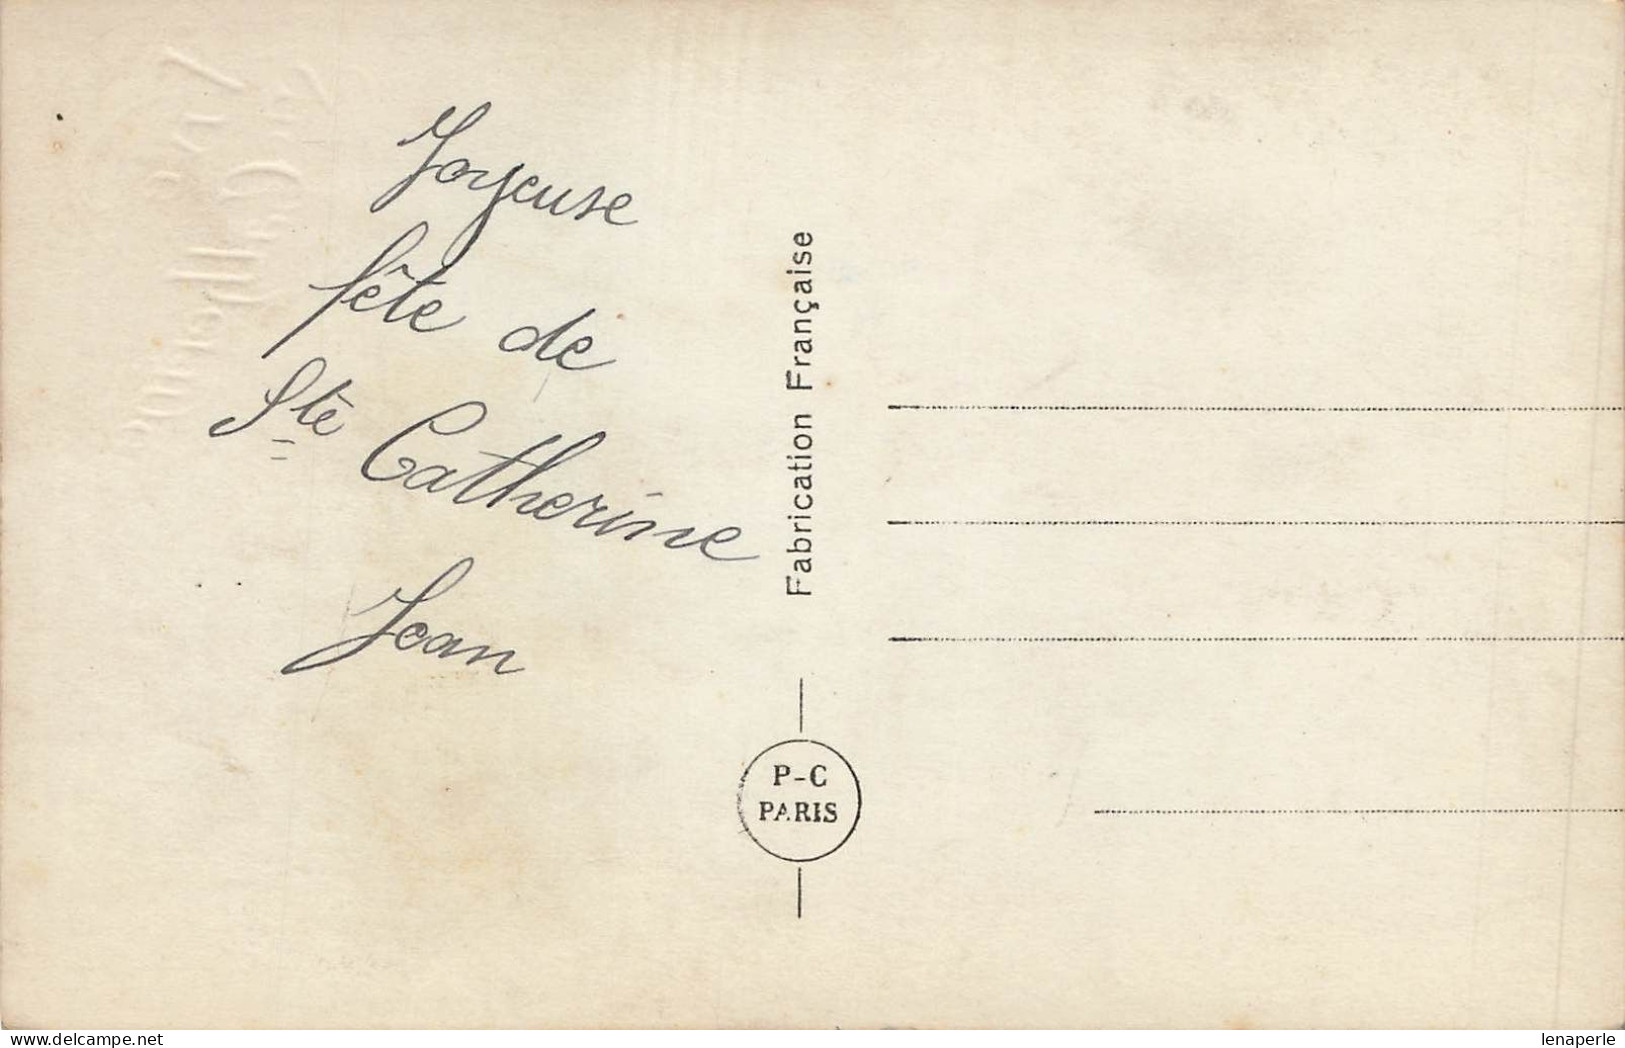 Joyeuse
fête de
Ste Catherine
Jean
Fabrication Française
P-C
PARIS
www.delcampe.net
lenaperle